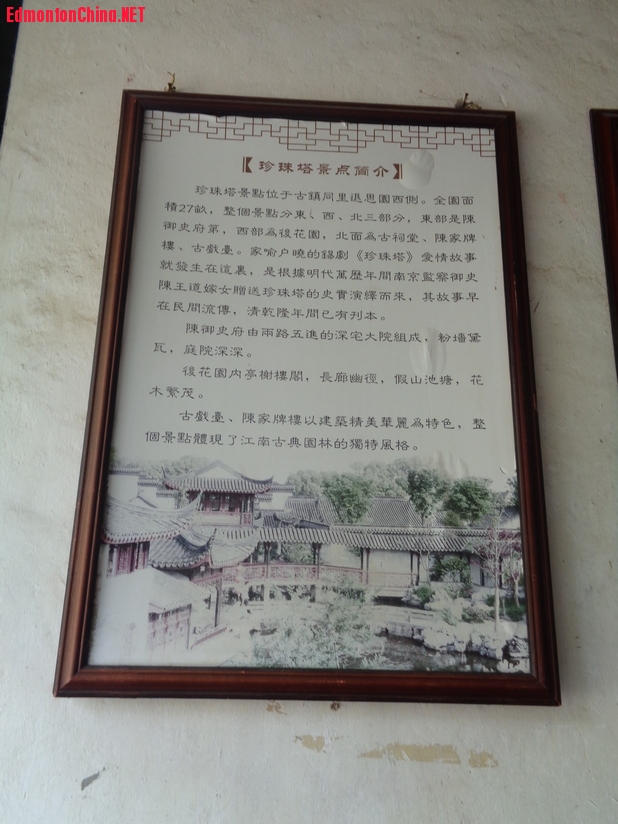 EdmontonChina.NET
【珍珠塔景点简介】
珍珠塔景點位于古鎮同里退思園西側。全園面
積27畝，整個景點分東、西、北三部分，東部是陳
御史府第，西部為後花園，北面為古祠堂、陳家牌
樓、古戲臺。家喻户曉的錫劇《珍珠塔》愛情故事
就發生在這裏，是根據明代萬歷年間南京監察御史
陳王道嫁女贈送珍珠塔的史實演繹而來，其故事早
在民間流傳，清乾隆年間已有刊本。
陳御史府由兩路五進的深宅大院組成，粉墻黛
瓦，庭院深深。
後花園内亭榭樓閣，長廊幽徑，假山池塘，花
木繁茂。
古戲臺、陳家牌樓以建築精美華麗為特色，整
個景點體現了江南古典園林的獨特風格。